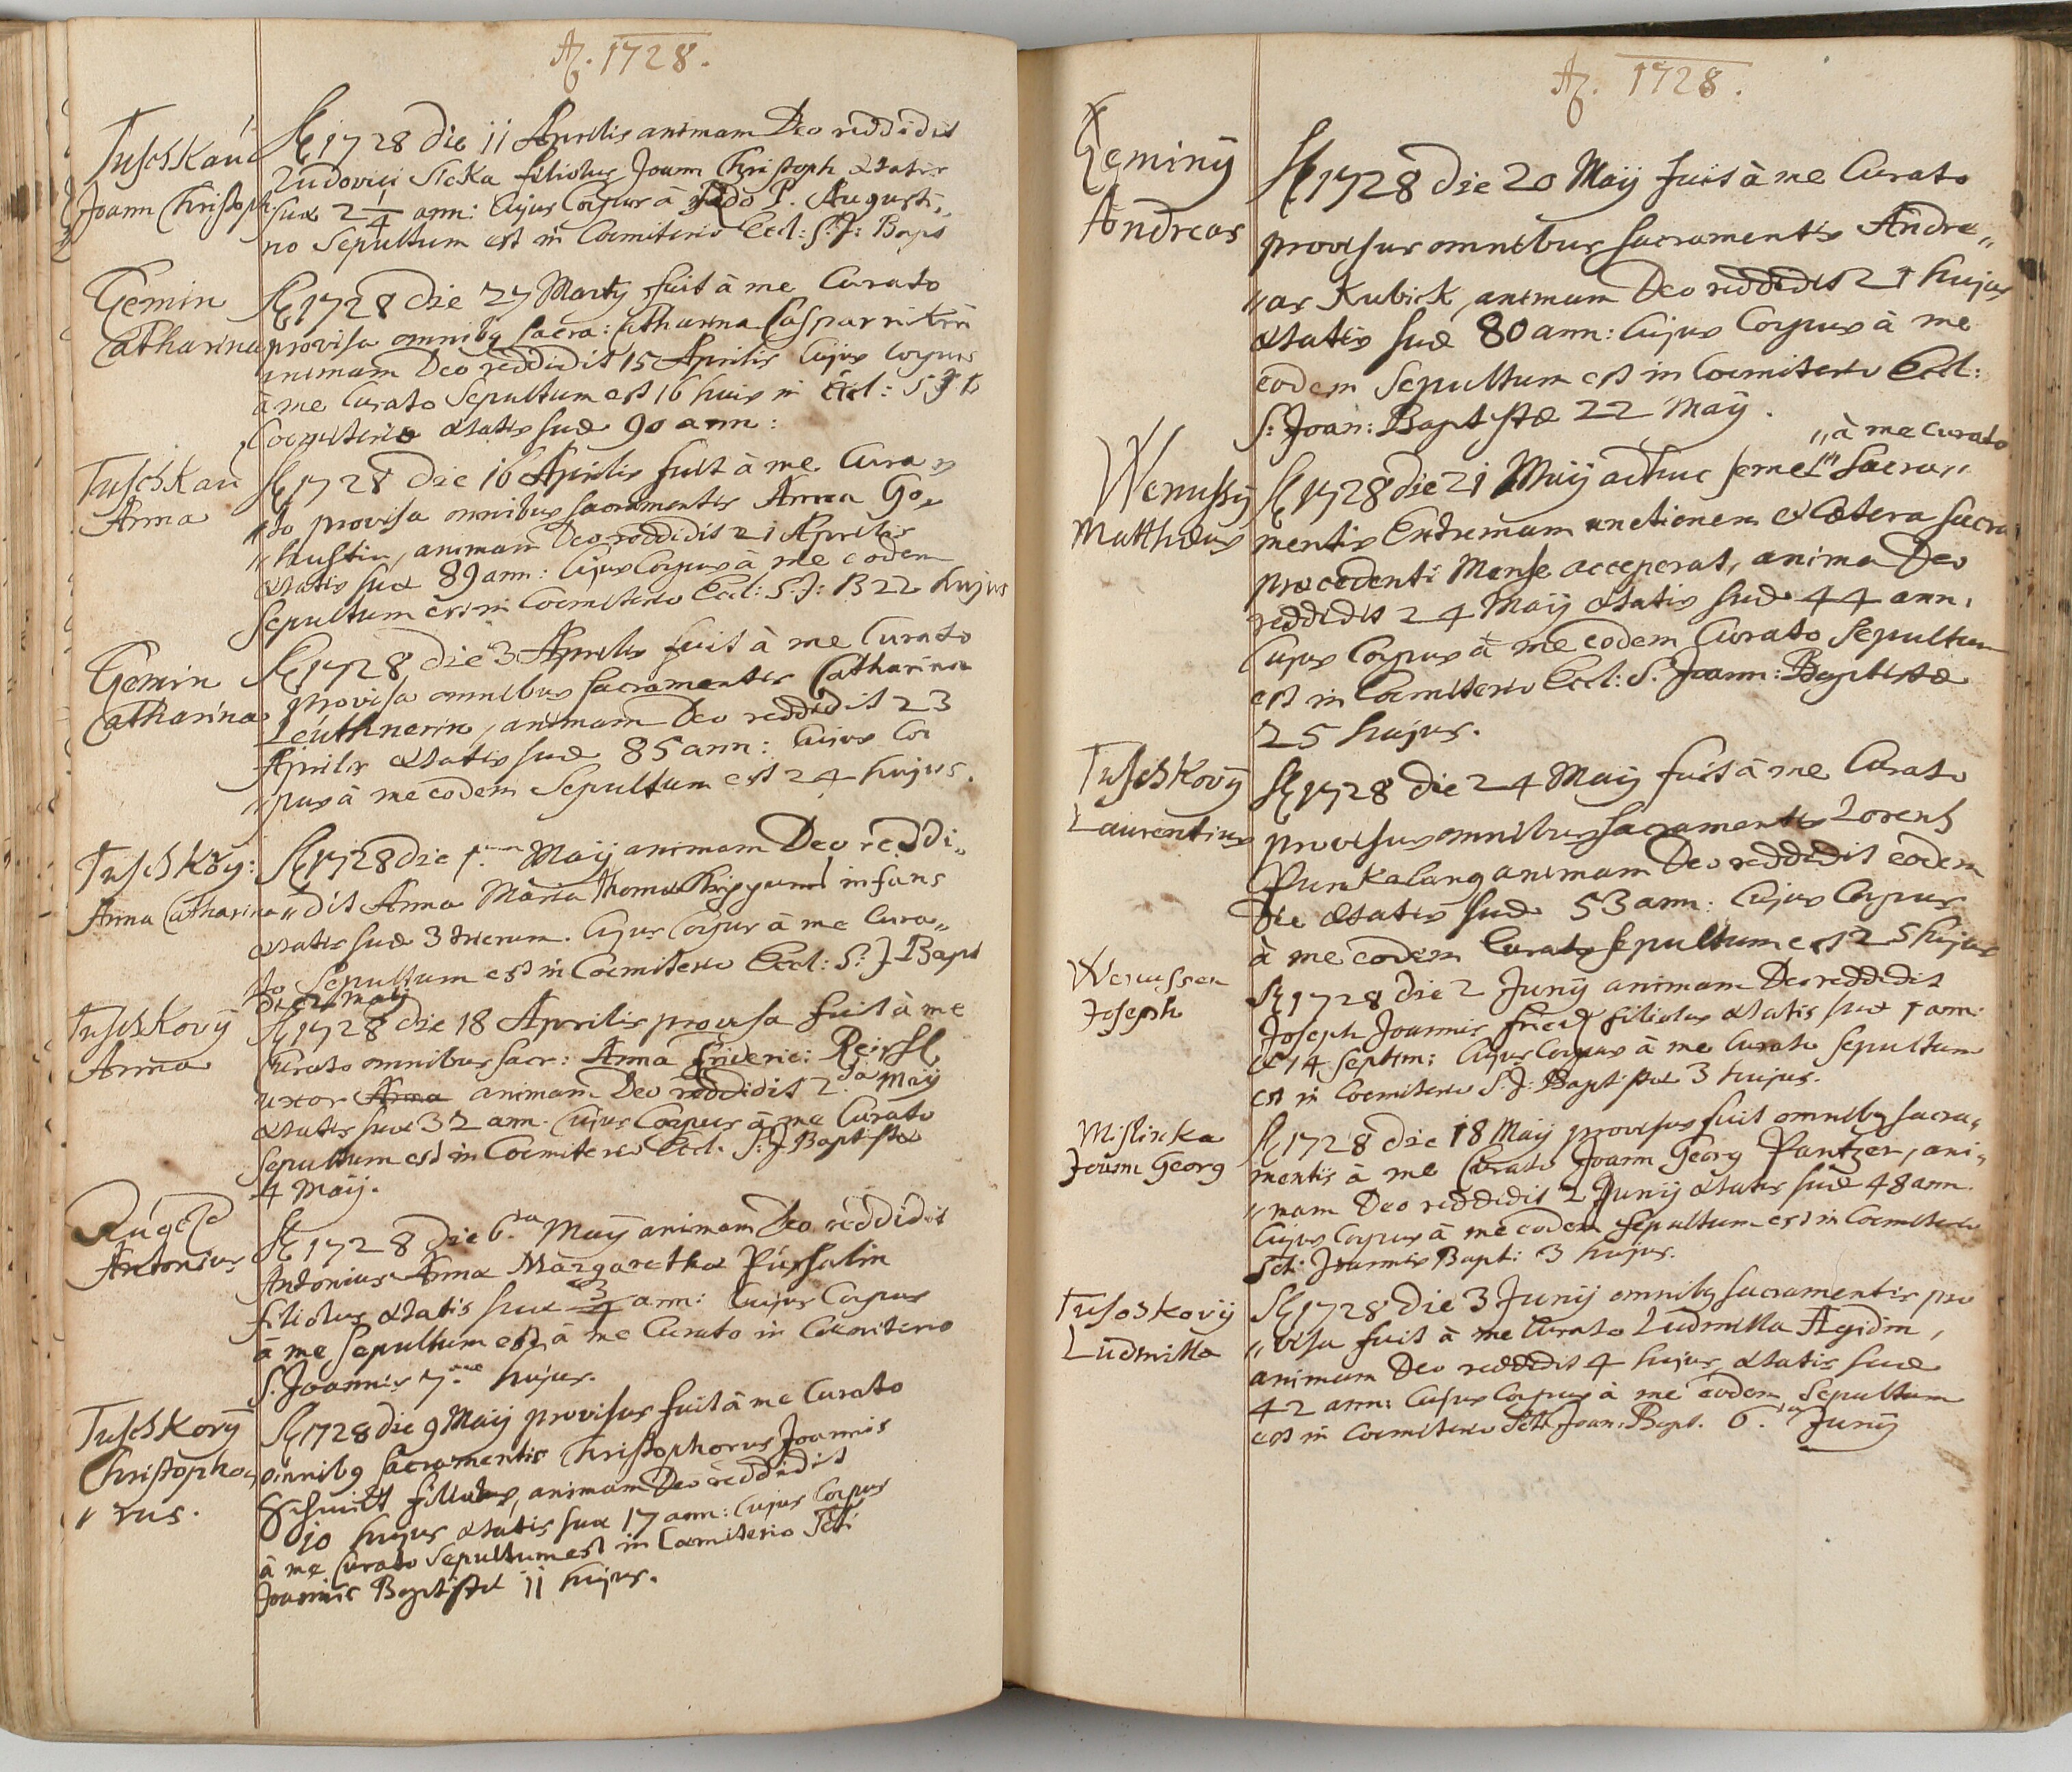 Aō. 1728.
Tuschkau
Joann Christoph
Aō 1728 die 11 Aprilis animam Deo reddidit
Ludovici Sicka filiolus Joann Christoph ætatis
suæ 2 1/4 ann: Cujus Corpus à P. Augusti„
no Sepultum est in Coemiterio Eccl: S: J: Bapt
Gemin
Catharina
Aō 1728 die 27 Martij fuit à me Curato
provisa omnibq sacra: Catharina
animam Deo reddidit 15 Aprilis Cujus Corpus
à me Curato Sepultum est 16 hujus in Eccl: S J B
Coemiterio ætatis suæ 90 ann:
Tuschkau
Anna
Aō 1728 die 16 Aprilis fuit à me Cura„
„to provisa omnibus sacramentis Anna
animam Deo reddidit 21 Aprilis
ætatis suæ 89 ann: Cujus Corpus à me eodem
Sepultum est in Coemiterio Eccl: S: J: B 22 hujus
Gemin
Catharina
Aō 1728 die 3 Aprilis fuit à me Curato
provisa omnibus sacramentis Catharina
Leuthnerin, animam Deo reddidit 23
Aprilis ætatis suæ 85 ann: Cujus Cor
„pus à me eodem Sepultum est 24 hujus.
Tuschkoy:
Anna Catharina
Aō 1728 die 1ma Maij animam Deo reddi„
„dit Anna Maria Thomæ infans
ætatis suæ 3 dierum. Cujus Corpus à me Cura„
to Sepultum est in Coemiterio Eccl: S: J Bapt
die 2 Maij
Tuschkovÿ
Anna
Aō 1728 die 18 Aprilis provisa fuit à me
Curato omnibus sacr: Anna Frideric: Reissl
uxor Anna animam Deo reddidit 2da Maij
ætatis suæ 32 ann. Cujus Corpus à me Curato
Sepultum est in Coemiterio Eccl. S: J: Baptistæ
4 Maij.
Antonius
Aō 1728 die 6ta Maij animam Deo reddidit
Antonius Anna Margaretha
filiolus ætatis suæ 3/4 ann: Cujus Corpus
à me Sepultum est à me Curato in Coemiterio
S. Joannis 7mæ hujus.
Tuschkovÿ
Christopho„
„rus.
Aō 1728 die 9 Maij provisus fuit à me Curato
omnibq Sacramentis Christophorus Joannis
Schmidt filiolus, animam Deo reddidit
10 hujus ætatis suæ 17 ann: Cujus Corpus
à me Curato Sepultum est in Coemiterio Scti
Joannis Baptistæ 11 hujus.
Aō. 1728.
Geminÿ
Andreas
Aō 1728 die 20 Maij fuit à me Curato
provisus omnibus sacramentis Andre„
„as Kubick, animam Deo reddidit 21 hujus
ætatis suæ 80 ann: Cujus Corpus à me
eodem Sepultum est in Coemiterio Eccl:
S: Joan: Baptistæ 22 Maij.
„à me Curato
Werussÿ
Matthæus
Aō 1728 die 21 Maij adhuc semel Sacra„
mentis Extremam unctionem et Cætera sacra
præcedenti Mense acceperat, anima Deo
reddidit 24 Maij ætatis suæ 44 ann:
Cujus Corpus à me eodem Curato Sepultum
est in Coemiterio Eccl: S. Joann: Baptistæ
25 hujus.
Tuschkovÿ
Laurentius
Aō 1728 die 24 Maij fuit à me Curato
provisus omnibus sacramentis Lorentz
animam Deo reddidit eodem
die ætatis suæ 53 ann: Cujus Corpus
à me eodem Curato Sepultum est 25 hujus
Werussen
Joseph
Aō 1728 die 2 Junij animam Deo reddidit
Joseph Joannis filiolus ætatis suæ 1 ann:
et 14 Septim: Cujus Corpus à me Curato Sepultum
est in Coemiterio S: J: Baptistæ 3 hujus.
Mislinka
Joann Georg
Aō 1728 die 18 Maij provisus fuit omnibq sacra„
mentis à me Curato Joann Georg Pantzer, ani„
„mam Deo reddidit 2 Junij ætatis suæ 48 ann.
Cujus Corpus à me eodem Sepultum est in Coemiterio
Sct: Joannis Bapt: 3 hujus.
Tuschkovÿ
Ludmilla
Aō 1728 die 3 Junij omnibq Sacramentis pro
„visa fuit à me Curato Ludmilla Agidin,
animam Deo reddidit 4 hujus, ætatis suæ
42 ann: Cujus Corpus à me eodem Sepultum
est in Coemiterio Scti Joan: Bapt. 6.ta Junij